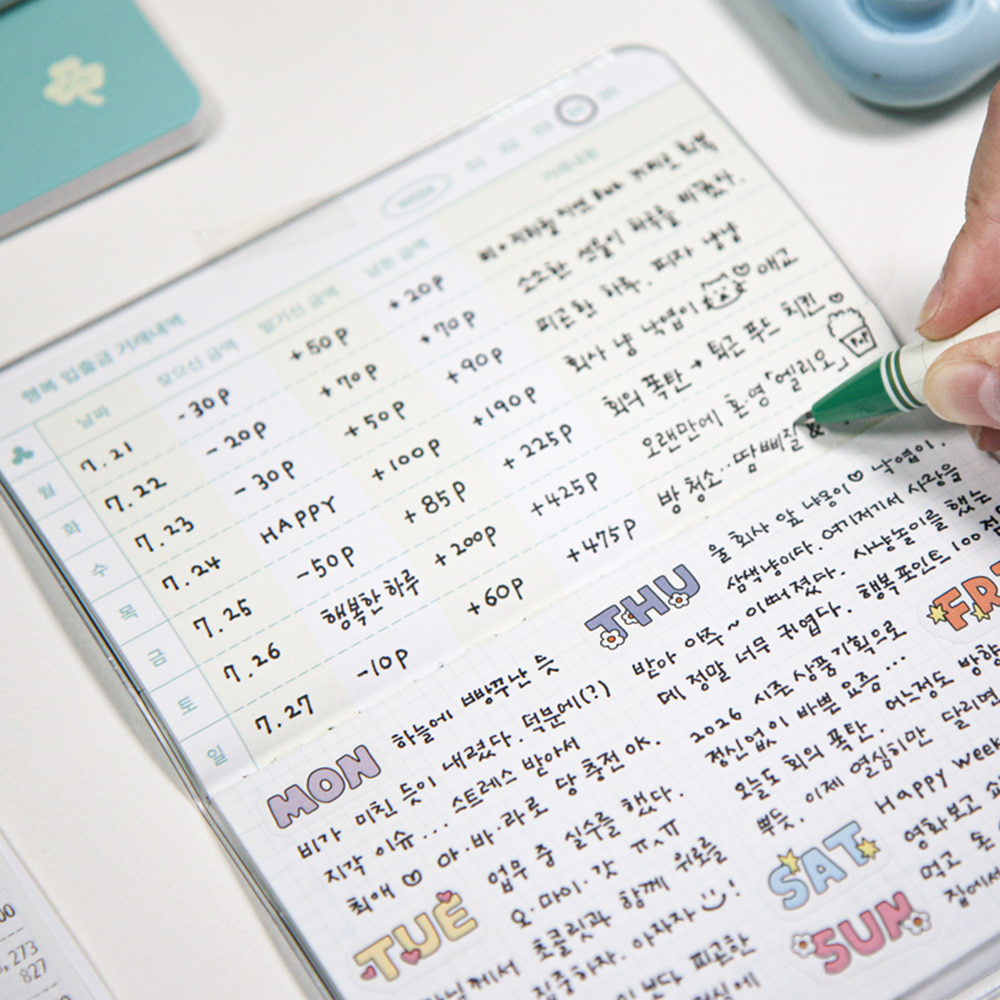 행복 입출금 거래내역
날짜 찾으신 금액 맡기신 금액 남은 금액 거래내용
월 7.21 -30P +50P +20P 비+지하철 지연 but 커피로 회복
화 7.22 -20P +70P +70P 소소한 선물이 하루를 바꿨다.
수 7.23 -30P +50P +90P 피곤한 하루. 피자 냠냠
목 7.24 HAPPY +100P +190P 회사 냥 낙엽이 애교
금 7.25 -50P +85P +225P 회의 폭탄 → 퇴근 푸드 치킨
토 7.26 행복한 하루 +200P +425P 오랜만에 혼영 「엘리오」
일 7.27 -10P +60P +475P 방 청소.. 땀 삐질 &
MON 하늘에 빵꾸난 듯
비가 미친 듯이 내렸다. 덕분에(?)
지각 이슈... 스트레스 받아서
최애 ♡ 아·바·라로 당 충전 OK.
TUE 업무 중 실수를 했다.
오·마이·갓 ㅠㅠ
초콜릿과 함께 위로를
집중하자. 아자자 !
보다 피곤한
THU 울 회사 앞 냐옹이 ♡ 낙엽이.
삼색냥이다. 여기저기서 사랑을
받아 아주~ 이뻐졌다. 사냥놀이를 했는
데 정말 너무 귀엽다. 행복포인트 100
FRI 2026 시즌 상품기획으로
정신없이 바쁜 요즘...
오늘도 회의 폭탄. 어느정도 방향
뿌듯. 이제 열심히만 달리면
SAT Happy week
영화보고
먹고
SUN 집에서
,273
827